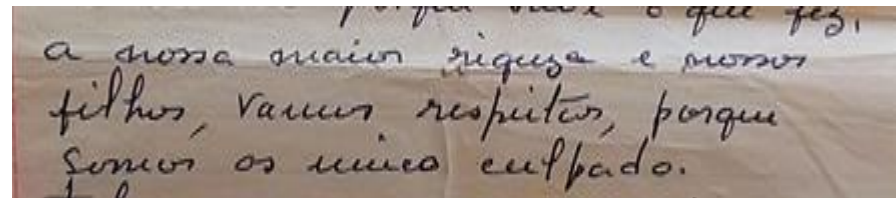 porque você o que fez,
a nossa maior riqueza e nossos
filhos, vamos respeitos, porque
somos os unico culpado.